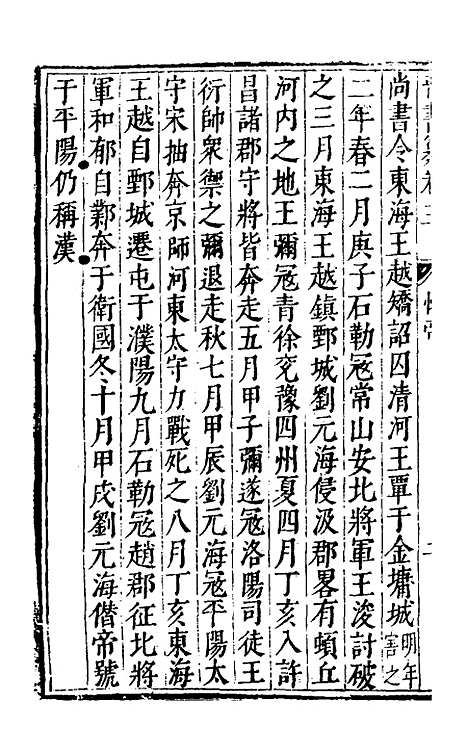 尚書令東海王越矯詔囚清河王覃于金墉城明年害之
二年春二月庚子石勒冦常山安北將軍王浚討破
之三月東海王越鎮鄄城劉元海侵汲郡畧有頓丘
河内之地王彌冦青徐兖豫四州夏四月丁亥入許
昌諸郡守將皆奔走五月甲子彌遂冦洛陽司徒王
衍帥衆禦之彌退走秋七月甲辰劉元海冦平陽太
守宋抽奔京師河東太守力戰死之八月丁亥東海
王越自鄄城遷屯于濮陽九月石勒冦趙郡征北將
軍和郁自鄴奔于衛國冬十月甲戌劉元海僭帝號
于平陽仍稱漢